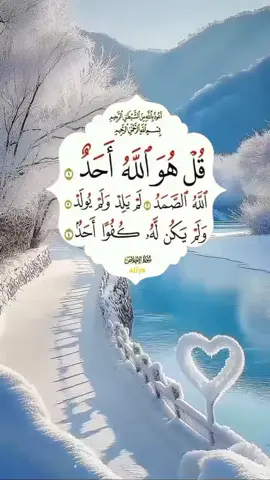 أعوذ بالله من الشيطن الرجيم
بسم الله الرحمن الرحيم
قُلْ هُوَ ٱللَّهُ أَحَدٌ ١
ٱللَّهُ ٱلصَّمَدُ ٢ لَمْ يَلِدْ وَلَمْ يُولَدْ ٣
وَلَمْ يَكُن لَّهُۥ كُفُوًا أَحَدٌ ٤
سورة الإخلاص
Aliya